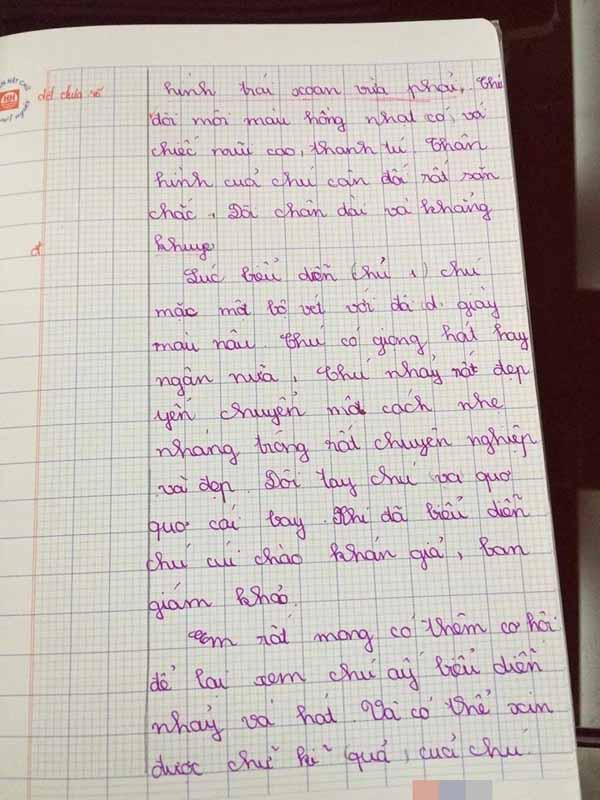 hình trái xoan vừa phải, Chú
đôi môi màu hồng nhạt có, và
chiếc mũi cao, thanh tú. Thân
hình của chú cân đối rất săn
chắc, Đôi chân dài và khẳng
khuye
Lúc biểu diễn (hủ 1) chú
mặc một bô vét với đá id. giày
màu nâu. Chú có giọng hát hay
ngân nưa, Chú nhảy rất đẹp
yển chuyển một cách nhe
nhàng trông rất chuyên nghiệp
và đẹp. Đôi tay chú va quơ
quơ cái tay. Khi đã biểu diễn
chú cúi chào khán giả, ban
giám khảo.
Em rất mong có thêm cơ hôi
để lai xem chú ấy biểu diễn
nhảy và hát. Và có thể xin
được chữ kí quả, của chú.